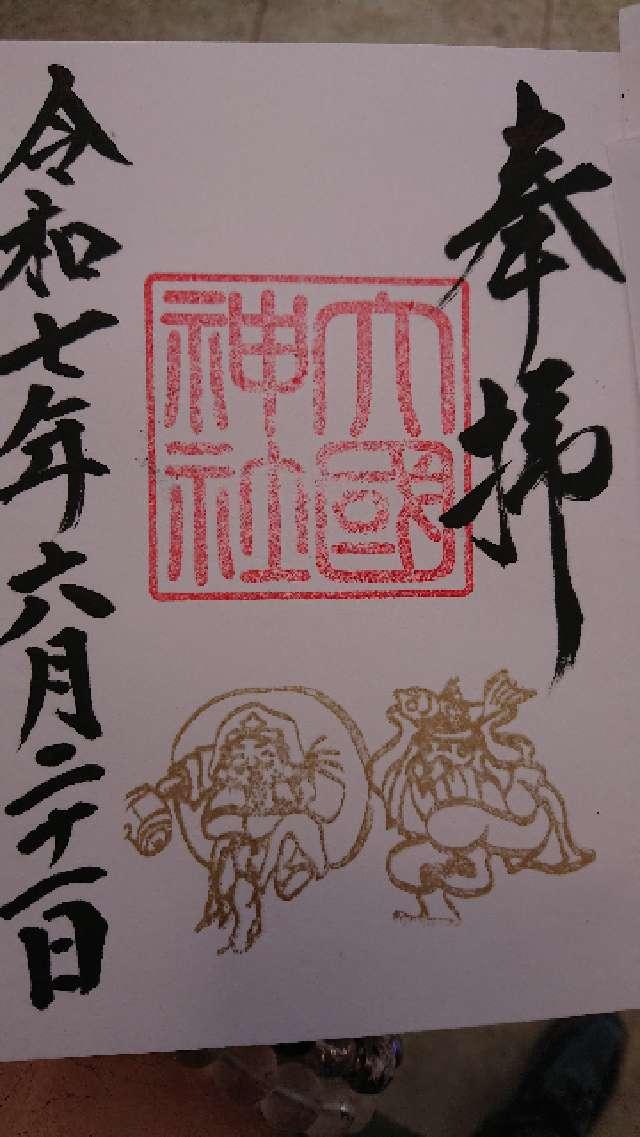 奉拝
大國神社
令和七年六月二十一日